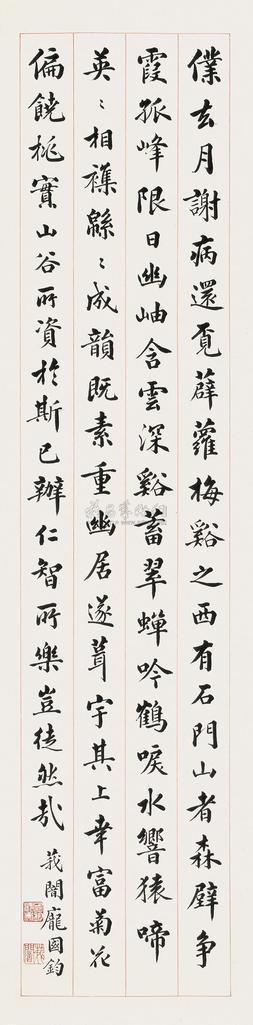 僕去月謝病還覓薜蘿梅谿之西有石門山者森壁争
霞孤峰限日幽岫含雲深谿蓄翠蟬吟鶴唳水響猿啼
英〻相襍緜〻成韻既素重幽居遂葺宇其上幸富菊花
偏饒桃實山谷所資於斯已辦仁智所樂豈徒然哉
龐國鈞